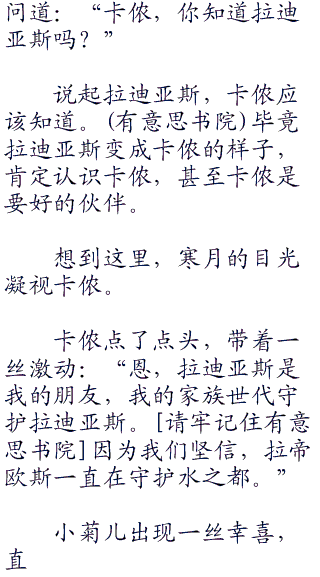 问道：“卡侬，你知道拉迪
亚斯吗？”
说起拉迪亚斯，卡侬应
该知道。(有意思书院)毕竟
拉迪亚斯变成卡侬的样子，
肯定认识卡侬，甚至卡侬是
要好的伙伴。
想到这里，寒月的目光
凝视卡侬。
卡侬点了点头，带着一
丝激动：“恩，拉迪亚斯是
我的朋友，我的家族世代守
护拉迪亚斯。[请牢记住有意
思书院]因为我们坚信，拉帝
欧斯一直在守护水之都。”
小菊儿出现一丝幸喜，
直